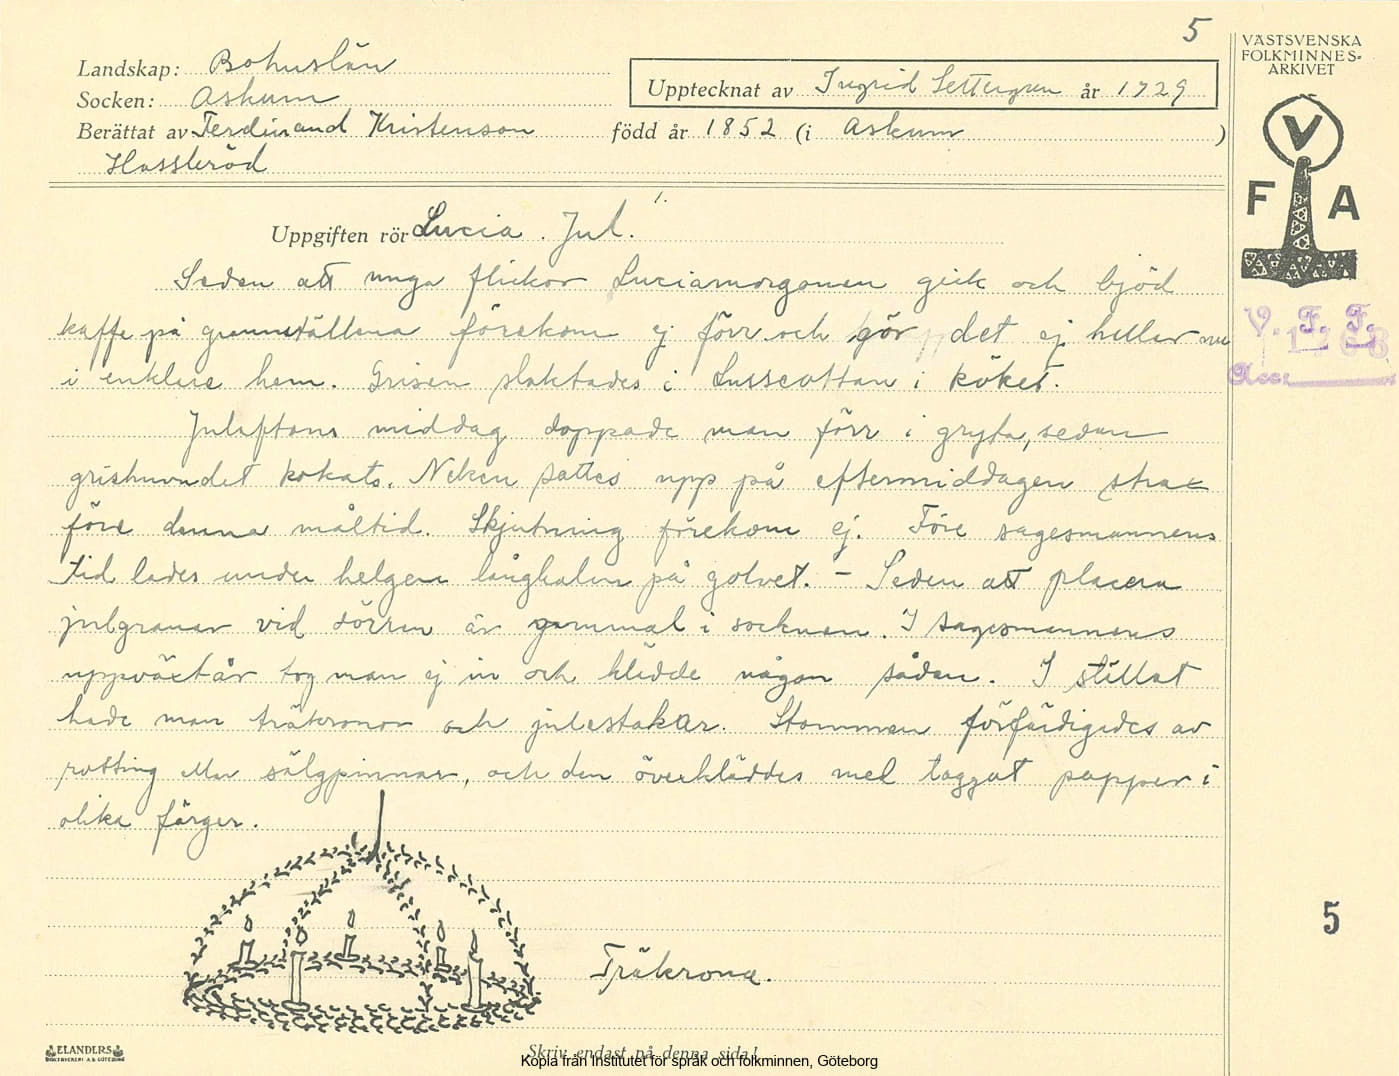 5
Landskap: Bohuslän
Socken: Askum
Upptecknat av Ingrid Settergren år 1929
Berättat av Ferdinand Kristenson född år 1852 (i Askum )
Hassleröd
Uppgiften rör Lucia. Jul. 1.
Seden att unga flickor Luciamorgonen gick och bjöd
kaffe på grannställena förekom ej förr och gör det ej heller nu
i enklare hem. Grisen slaktades i Lusseottan i köket.
Julaftons middag doppade man förr i gryta, sedan
grishuvudet kokats. Neken sattes upp på eftermiddagen strax
före denna måltid. Skjutning förekom ej. Före sagesmannens
tid lades under helgen långhalm på golvet. – Seden att placera
julgranar vid dörren är gammal i socknen. I sagesmannens
uppväxtår tog man ej in och klädde någon sådan. I stället
hade man träkronor och julestakar. Stommen förfärdigades av
rotting eller sälgpinnar, och den överkläddes med taggat papper i
olika färger.
Träkrona.
VÄSTSVENSKA
FOLKMINNES-
ARKIVET
V
F A
V. F. F.
Acc:
5
ELANDERS
BOKTRYCKERI A.B. GÖTEBORG
Skriv endast på denna sida!
Kopia från Institutet för språk och folkminnen, Göteborg